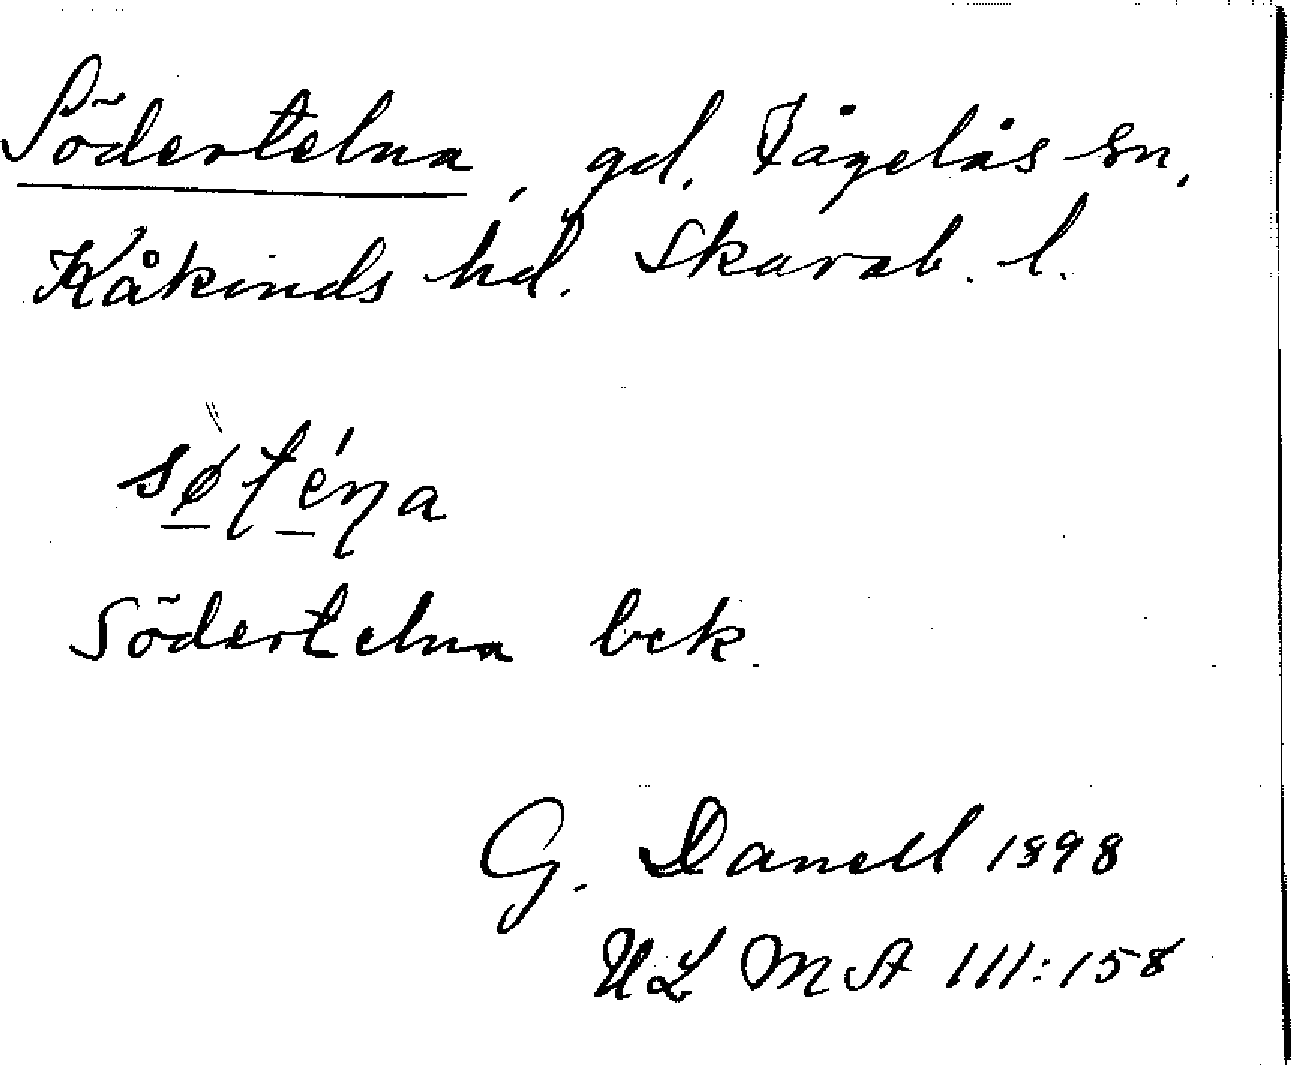 Södertelna, gd. Fågelås sn,
Kåkinds hd. Skarab. l.
sø̀téna
Södertelna bek.
G. Danell 1898
ULMA 111:158